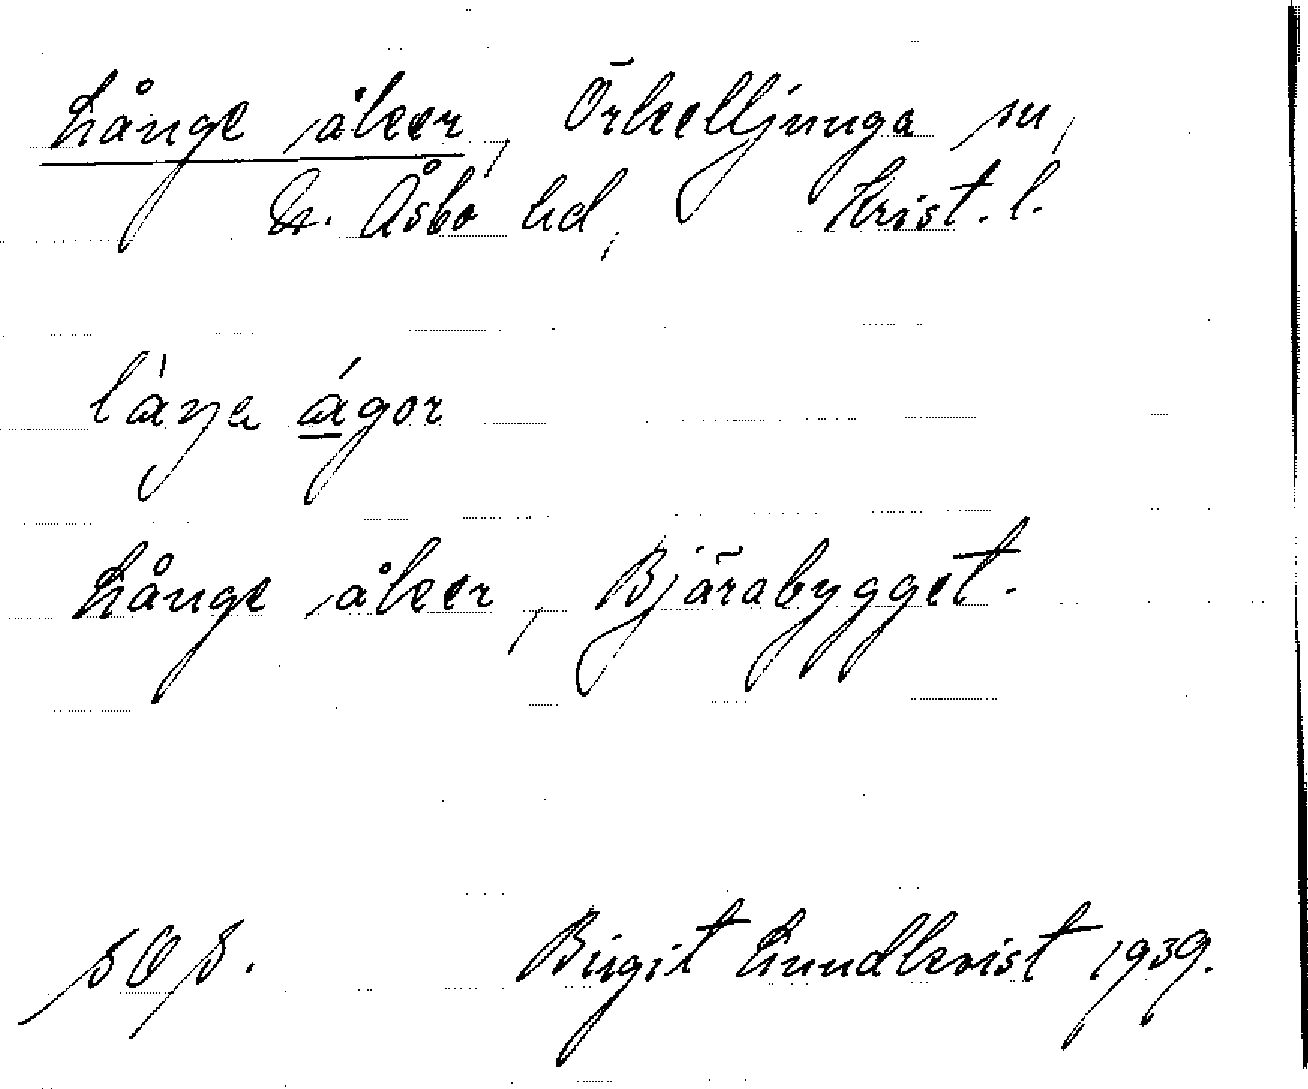 Långe åker, Örkelljunga sn,
N. Åsbo hd, Krist. l.
låŋa ágor
Långe åker, Bjärabygget.
Birgit Lundkvist 1939.